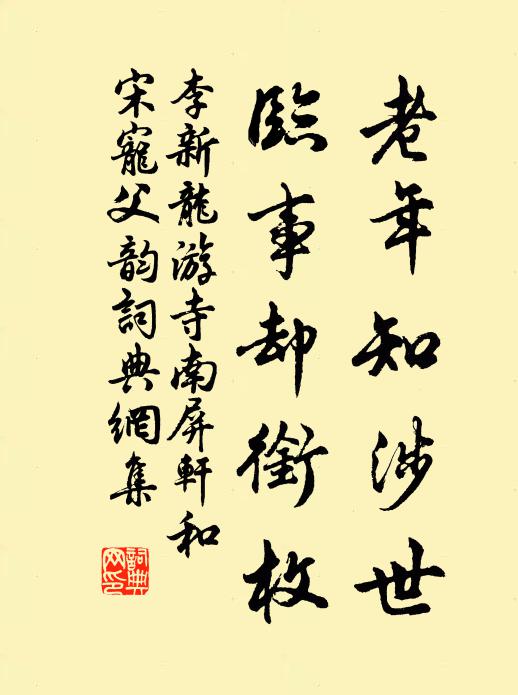 老年知涉世
臨事却銜枚
李新龍游寺南屏軒和
宋寵父韵詞典網集
詞典网印